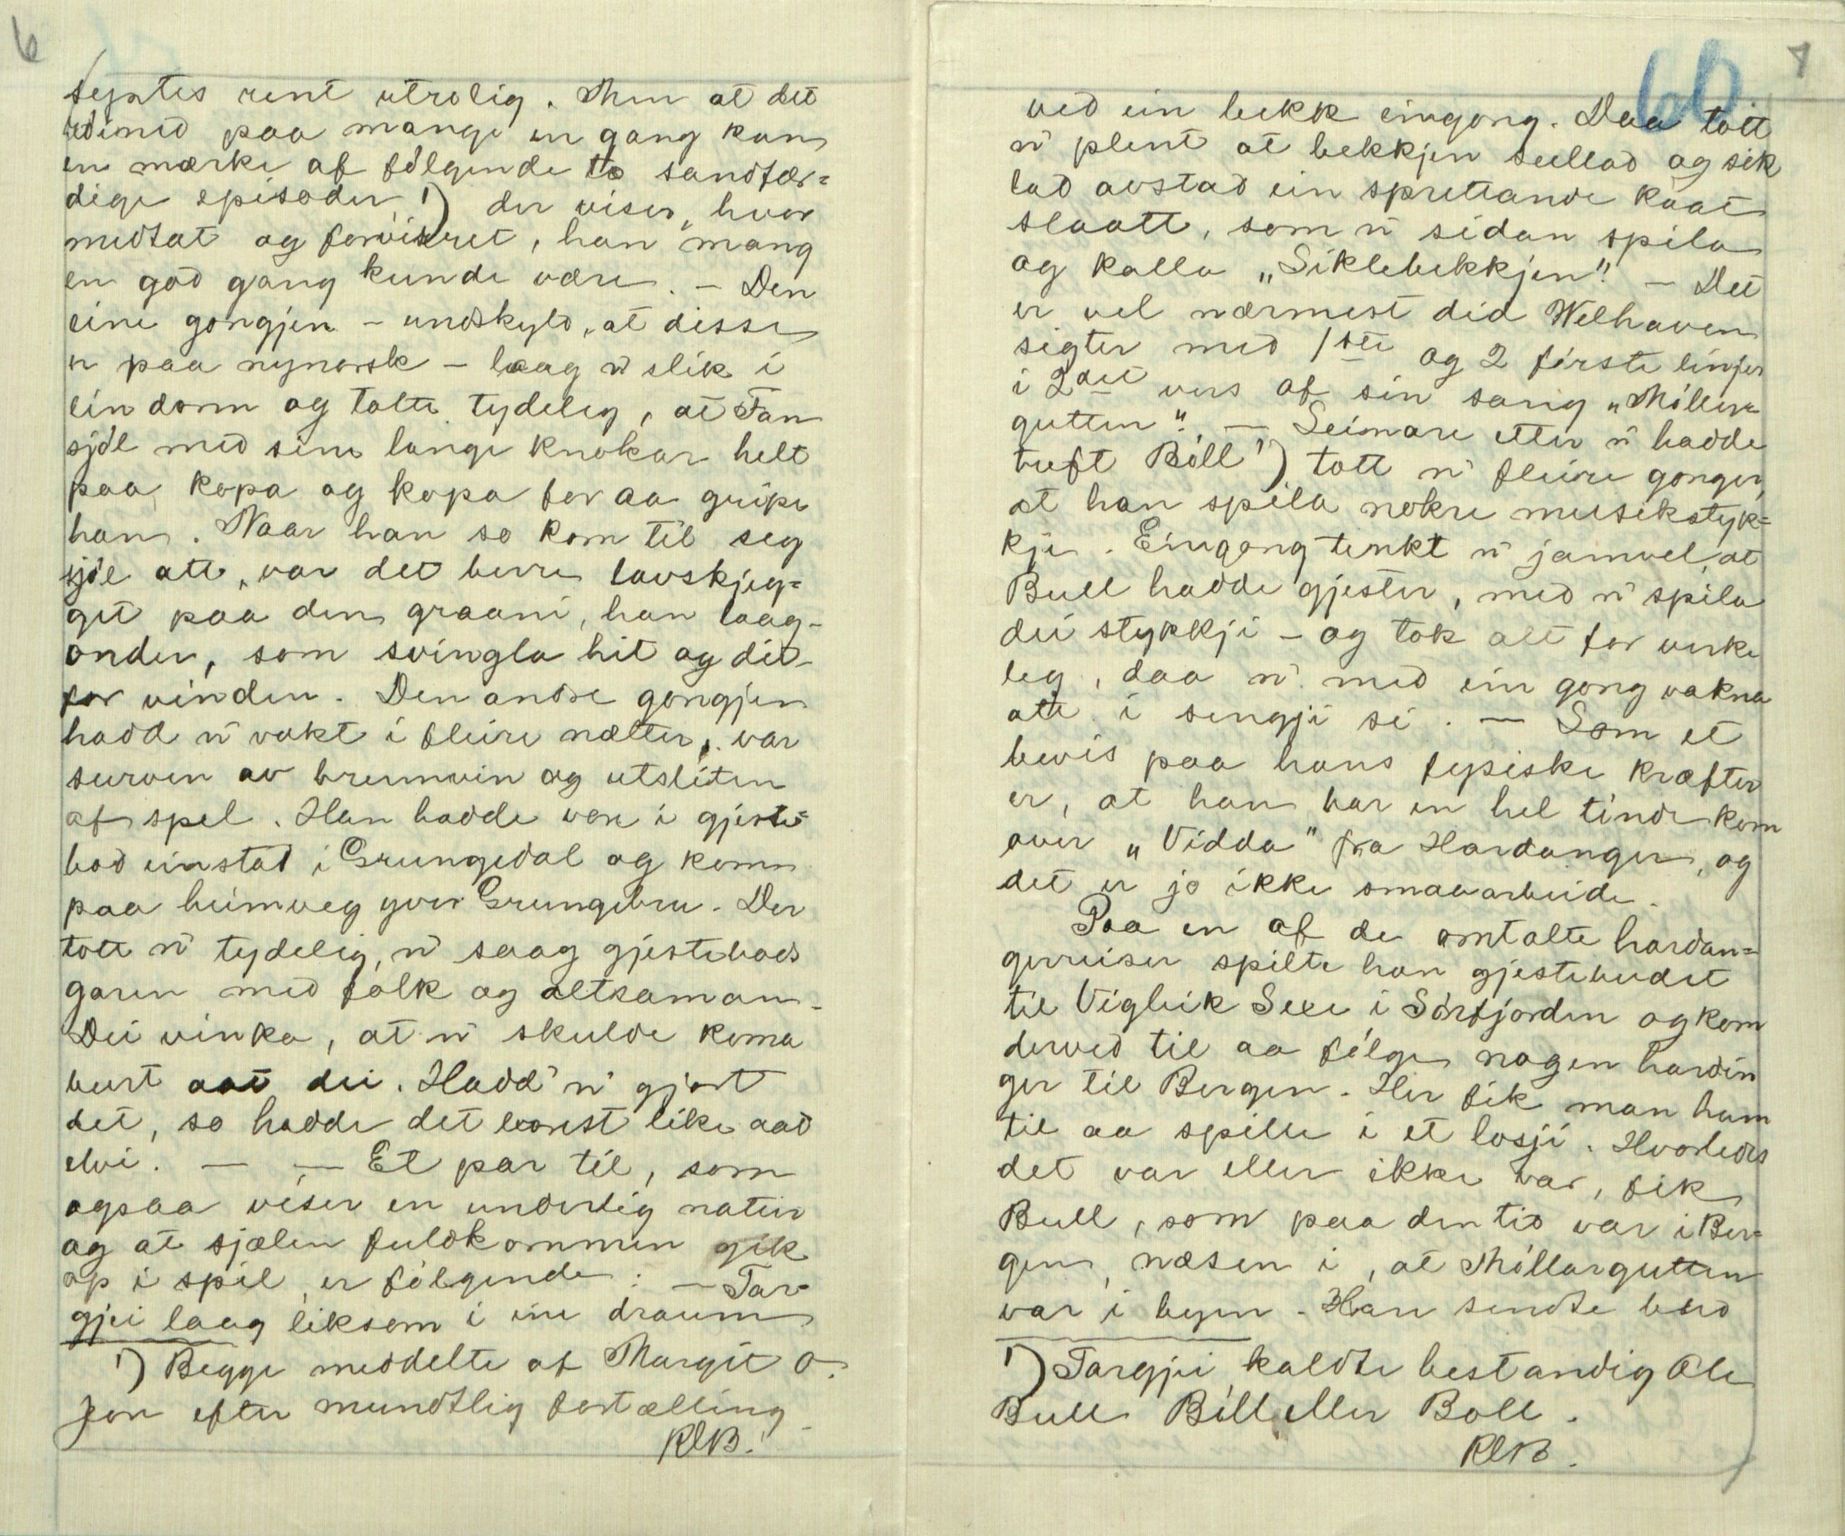 6
syntes rent utrolig. Men at det
paa mange en gang kan
en mærke af følgende to sandfær=
dige episoder 1) der viser, hvor
medtat og forvirret, han mang
en god gang kunde være. — Den
eine gongjen — undskyld, at disse
er paa nynorsk — laag n' slik i
ein dorm og totte tydeleg, at Fan
sjøl med sine lange knokar helt
paa kopa og kopa for aa gripe
han. Naar han so kom til seg
sjøl att, var det berre lavskjeg=
get paa den grani, han laag
onder, som svingla hit og dit
for vinden. Den andre gongjen
hadd n' vakt i fleire nætter, var
surven av brennvin og utsliten
af spel. Han hadde vore i gjeste=
bod einstad i Grungedal og kom
paa heimveg yver Grungebru. Der
tott n' tydelig, n' saag gjestebods
garen med folk og altsaman.
Dei vinka, at n' skulde koma
burt aat dei. Hadd' n' gjort
det, so hadde det borist like aad
elvi. — — Et par til, som
ogsaa viser en underlig natur
og at sjælen fuldkommen gik
op i spil, er følgende: — Tar-
gjei laag liksom i ein draum
1) Begge meddelte af Margit O.
Jon efter mundtlig fortælling
RLB.
60
7
ved ein bekk eingong. Daa tott
n' plent at bekkjen sullad og sik
lad avstad ein sprettande kaat
slaatt, som n' sidan spila
og kalla „Siklebekkjen". — Det
er vel nærmest did Welhaven
sigter med 1ste og 2 første linjer
i 2det vers af sin sang „Møllar
gutten". — Seinare etter n' hadde
treft Bøll 1) tott n' fleire gonger,
at han spila nokre musikstyk=
kje. Eingong tenkt n' jamvel, at
Bull hadde gjester, med n' spila
dei stykkji — og tok alt for verke
leg, daa n' med ein gong vakna
att i sengji si. — Som et
bevis paa hans fysiske kræfter
er, at han bar en hel tinde korn
over „Vidda" fra Hardanger, og
det er jo ikke smaaarbeide.
Paa en af de omtalte hardan=
gerreiser spilte han gjestebudet
til Vigleik Sexe i Sørfjorden og kom
derved til aa følge nogen hardin
ger til Bergen. Her fik man ham
til aa spille i et losji. Hvorledes
det var eller ikke var, fik
Bull, som paa den tid var i Ber=
gen, næsen i, at Møllargutten
var i byen. Han sendte bud
1) Targjei kaldte bestandig Ole
Bull Bøll eller Boll.
RLB.